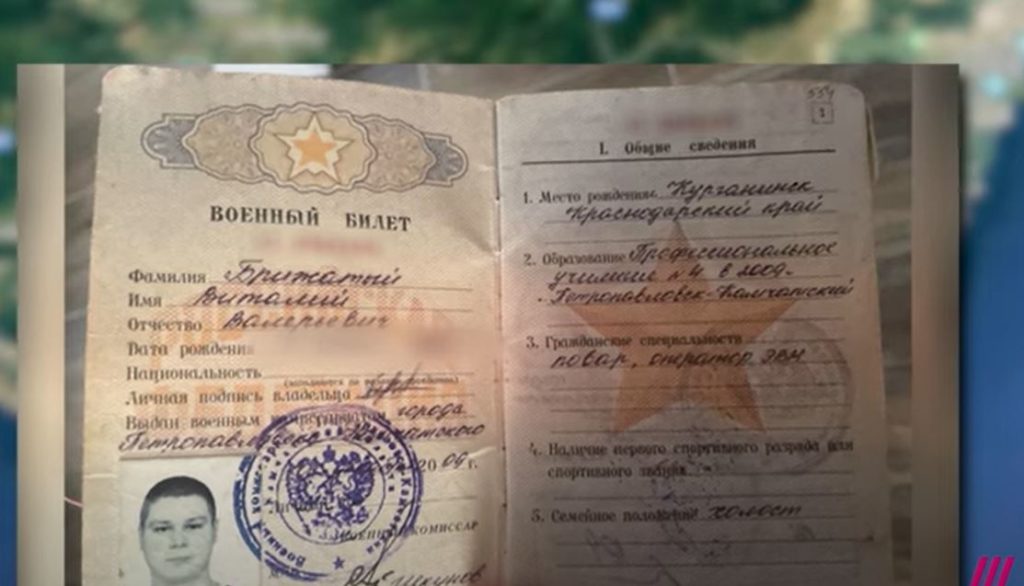 ВОЕННЫЙ БИЛЕТ
Фамилия Брижатый
Имя Виталий
Отчество Валерьевич
Дата рождения
Национальность
Личная подпись владельца
Выдан военным комиссариатом города
Петропавловска-Камчатского
2009 г.
ВОЕННЫЙ КОМИССАР
554
3
I. Общие сведения
1. Место рождения: Курганинск
Краснодарский край
2. Образование Профессиональное
училище №4 в 2009г.
г. Петропавловск-Камчатский
3. Гражданские специальности
повар, оператор ЭВМ
4. Наличие первого спортивного разряда или
спортивного звания
5. Семейное положение холост